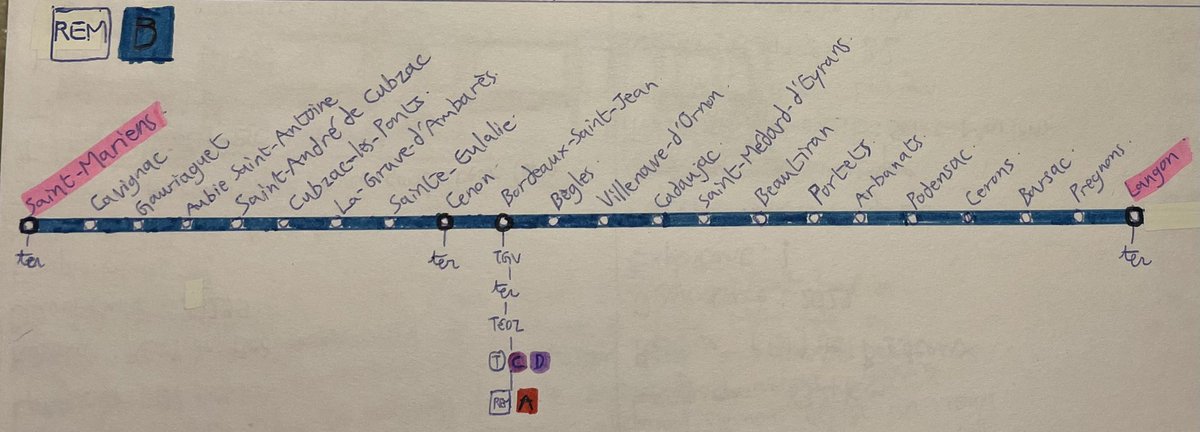 REM B
Saint-Mariens
Cavignac
Gauriaguet
Aubie Saint-Antoine
Saint-André de Cubzac
Cubzac-les-Ponts
La-Grave-d'Ambarès
Sainte-Eulalie
Cenon
Bordeaux-Saint-Jean
Bègles
Villenave-d'Ornon
Cadaujac
Saint-Médard-d'Eyrans
Beautiran
Portets
Arbanats
Podensac
Cerons
Barsac
Preignons
Langon
ter
ter
TGV
ter
TEOZ
T C D
REM A
ter